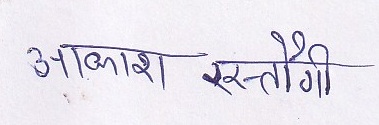 आकाश रस्तौगी